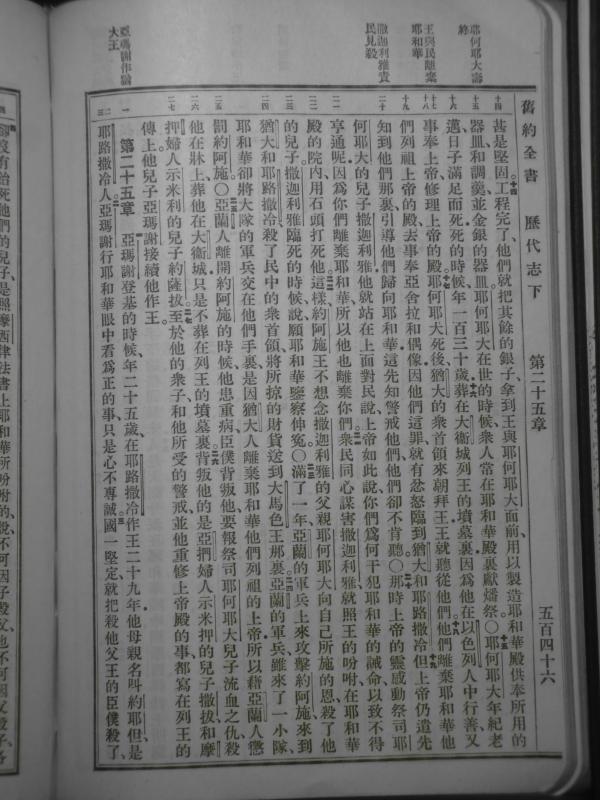 舊約全書　歷代志下　第二十五章　五百四十六
耶何耶大壽終
王與民離棄耶和華
撒迦利雅責民見殺
亞瑪謝作論大王
十四　甚是堅固工程完了他們就把其餘的銀子拿到王與耶何耶大面前用以製造耶和華殿供奉所用的
十五　器皿和調羹並金銀的器皿耶何耶大在世的時候衆人常在耶和華殿裏獻燔祭〇耶何耶大年紀老
十六　邁日子滿足而死死的時候年一百三十歲葬在大衞城列王的墳墓裏因爲他在以色列人中行善又
十七十八　事奉上帝修理上帝的殿耶何耶大死後猶大的衆首領來朝拜王王就聽從他們他們離棄耶和華他
十九　們列祖上帝的殿去事奉亞舍拉和偶像因他們這罪就有忿怒臨到猶大和耶路撒冷但上帝仍遣先
二十　知到他們那裏引導他們歸向耶和華這先知警戒他們他們卻不肯聽〇那時上帝的靈感動祭司耶
何耶大的兒子撒迦利雅他就站在上面對民說上帝如此說你們爲何干犯耶和華的誡命以致不得
二一　亨通呢因爲你們離棄耶和華所以他也離棄你們衆民同心謀害撒迦利雅就照王的吩咐在耶和華
二二　殿的院內用石頭打死他這樣約阿施王不想念撒迦利雅的父親耶何耶大向自己所施的恩殺了他
二三　的兒子撒迦利雅臨死的時候說願耶和華鑒察伸冤〇滿了一年亞蘭的軍兵上來攻擊約阿施來到
二四　猶大和耶路撒冷殺了民中的衆首領將所掠的財貨送到大馬色王那裏亞蘭的軍兵雖來了一小隊
耶和華卻將大隊的軍兵交在他們手裏是因猶大人離棄耶和華他們列祖的上帝所以藉亞蘭人懲
二五　罰約阿施〇亞蘭人離開約阿施的時候他患重病臣僕背叛他要報祭司耶何耶大兒子流血之仇殺
二六　他在牀上葬他在大衞城只是不葬在列王的墳墓裏背叛他的是亞捫婦人示米押的兒子撒拔和摩
二七　押婦人示米利的兒子約薩拔至於他的衆子和他所受的警戒並他重修上帝殿的事都寫在列王的
傳上他兒子亞瑪謝接續他作王
一　第二十五章　亞瑪謝登基的時候年二十五歲在耶路撒冷作王二十九年他母親名叫約耶但是
二三　耶路撒冷人亞瑪謝行耶和華眼中看爲正的事只是心不專誠國一堅定就把殺他父王的臣僕殺了
四　卻沒有治死他們的兒子是照摩西律法書上耶和華所吩咐的說不可因子殺父也不可因父殺子各